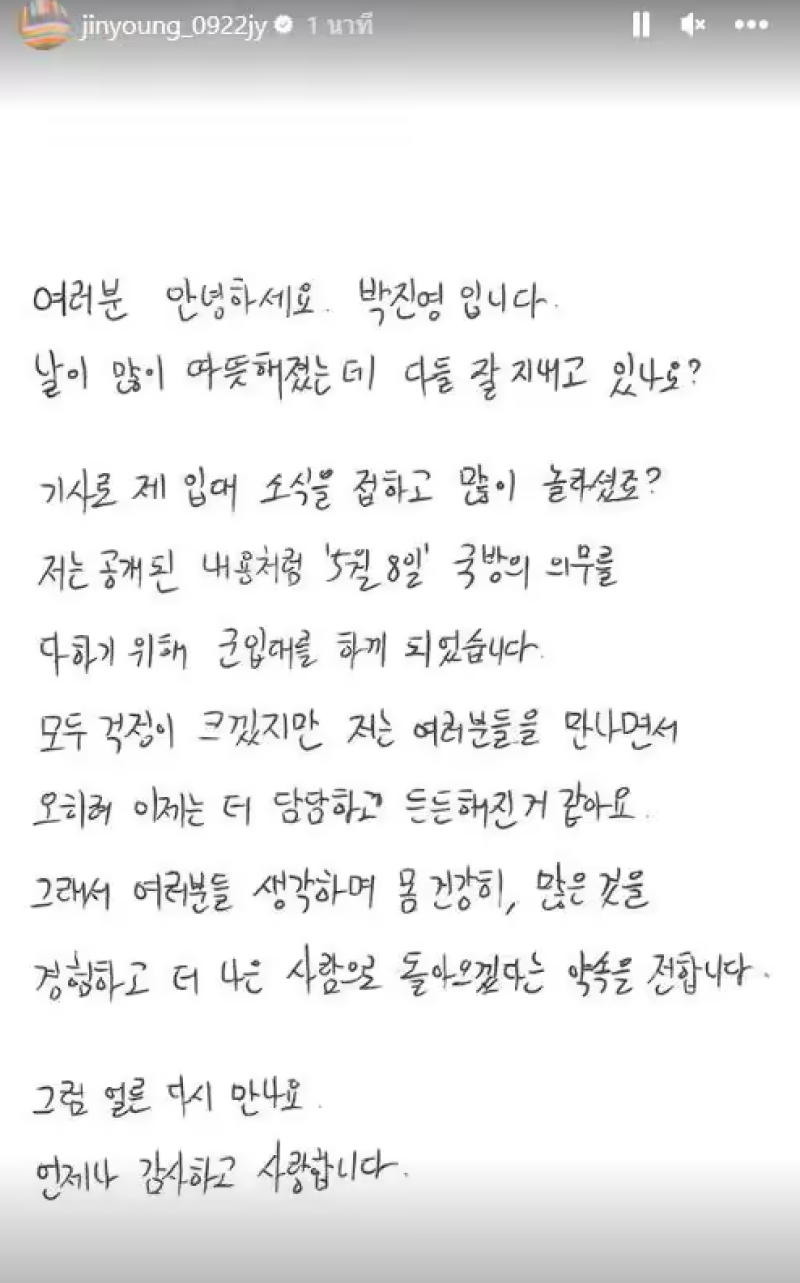 jinyoung_0922jy 1 นาที
여러분 안녕하세요. 박진영입니다.
날이 많이 따뜻해졌는데 다들 잘 지내고 있나요?
기사로 제 입대 소식을 접하고 많이 놀라셨죠?
저는 공개된 내용처럼 '5월 8일' 국방의 의무를
다하기 위해 군입대를 하게 되었습니다.
모두 걱정이 크겠지만 저는 여러분들을 만나면서
오히려 이제는 더 담담하고 든든해진거 같아요.
그래서 여러분들 생각하며 몸 건강히, 많은 것을
경험하고 더 나은 사람으로 돌아오겠다는 약속을 전합니다.
그럼 얼른 다시 만나요.
언제나 감사하고 사랑합니다.